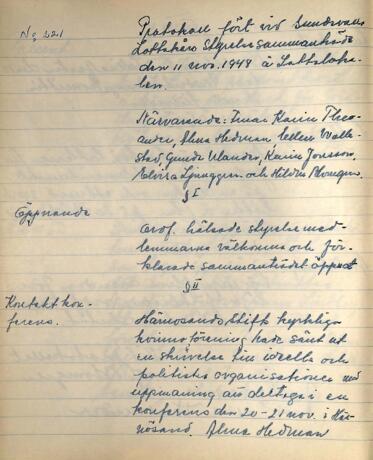 No 221
Protokoll fört vid Sundsvalls
Lottakårs Styrelsesammanträde
den 11 nov. 1948 å Lottaloka-
len.
Närvarande: Fruar Karin Theo-
ander, Alma Hedman, Ellen Walle-
stad, Gunda Ulander, Karin Jonsson,
Elvira Ljunggren och Hildur
§ I
Öppnande
Ordf. hälsade styrelsemed-
lemmarna välkomna och för-
klarade sammanträdet öppnat
§ II
Kontaktkon-
ferens.
Härnösands Stifts kyrkliga
kvinnoförening hade sänt ut
en skrivelse till ideella och
politiska organisationer med
uppmaning att deltaga i en
konferens den 20-21 nov. i Här-
nösand. Alma Hedman